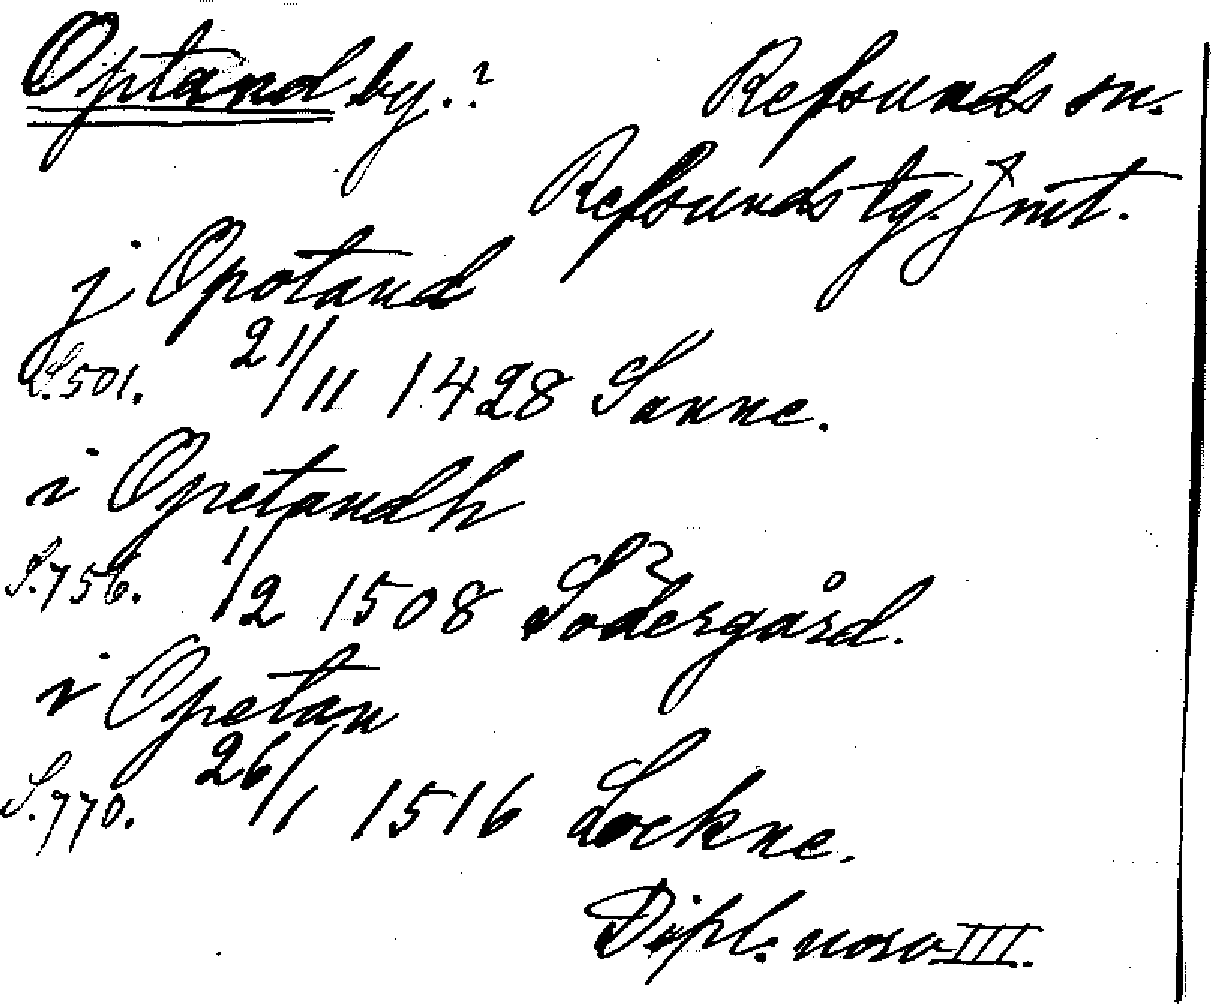 Optand by.? Refsunds sn.
Refsunds tg. Jmt.
j Opotand
S.501. 21/11 1428 Sunne.
i Opetandh
S.756. 1/2 1508 Södergård.
i Opetan
S.770. 26/1 1516 Lockne.
Dipl. norv III.